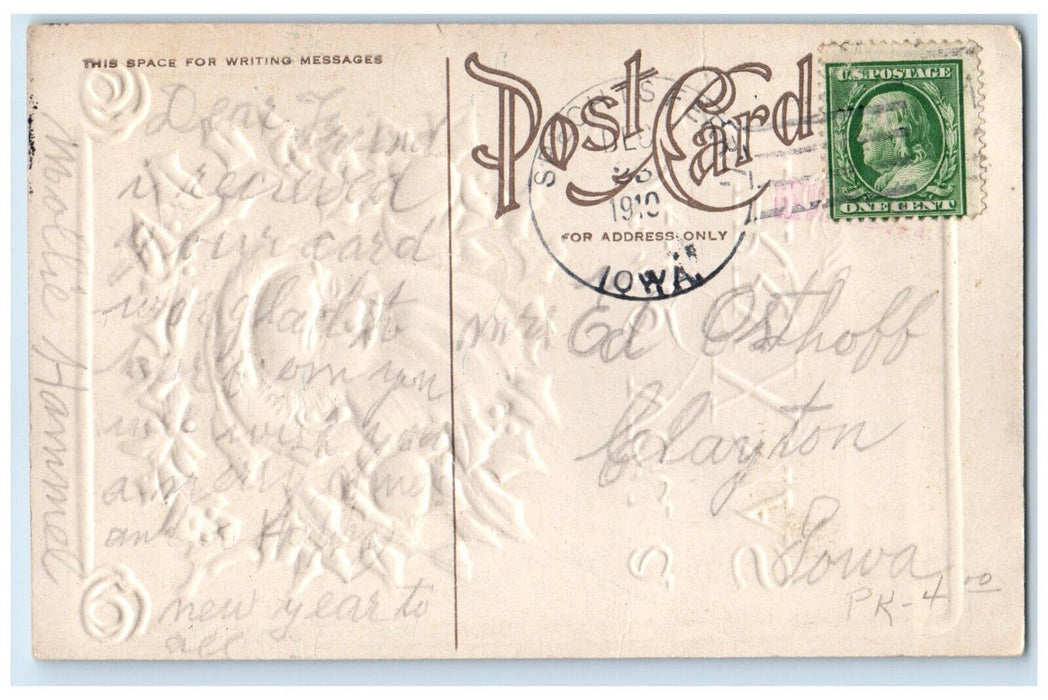 THIS SPACE FOR WRITING MESSAGES
Post Card
FOR ADDRESS ONLY
U.S. POSTAGE
ONE CENT
DEC
23
1910
IOWA.
Dear Friend
i received
your card
was glad to
hear from you
will wish you
a merry
and a Happy
new year to
all
Mattie Hammel
Mrs Ed Osthoff
Clayton
Iowa
PK-4.00